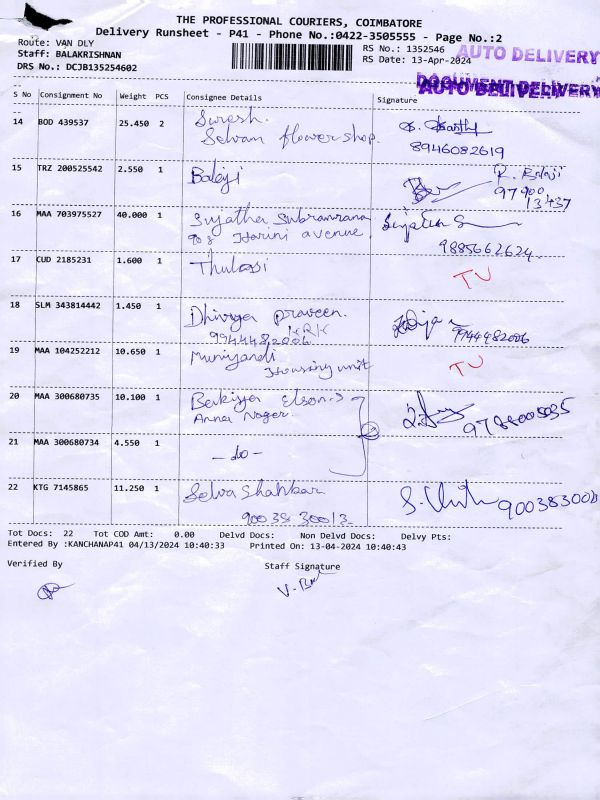 THE PROFESSIONAL COURIERS, COIMBATORE
Delivery Runsheet - P41 - Phone No.:0422-3505555 - Page No.:2
Route: VAN DLY
Staff: BALAKRISHNAN
DRS No.: DCJB135254602
RS No.: 1352546
RS Date: 13-Apr-2024
AUTO DELIVERY
DOCUMENT DELIVERY
AUTO DELIVERY
S No Consignment No Weight PCS Consignee Details Signature
14 BOD 439537 25.450 2 Suresh.
Selvam flower shop.
8946082619
15 TRZ 200525542 2.550 1 Balaji R. Balaji
97900
13437
16 MAA 703975527 40.000 1 Sujatha Subramanian Sujatha S
Harini avenue.
9885662624
17 CUD 2185231 1.600 1 Thulasi
18 SLM 343814442 1.450 1 Dhivya praveen.
9944482006 9944482006
19 MAA 104252212 10.650 1 Muniyandi
Housing unit
20 MAA 300680735 10.100 1
Anna Nagar.
21 MAA 300680734 4.550 1 - do -
22 KTG 7145865 11.250 1 Selva Shankar
90038 30013
Tot Docs: 22 Tot COD Amt: 0.00 Delvd Docs: Non Delvd Docs: Delvy Pts:
Entered By :KANCHANAP41 04/13/2024 10:40:33 Printed On: 13-04-2024 10:40:43
Verified By Staff Signature